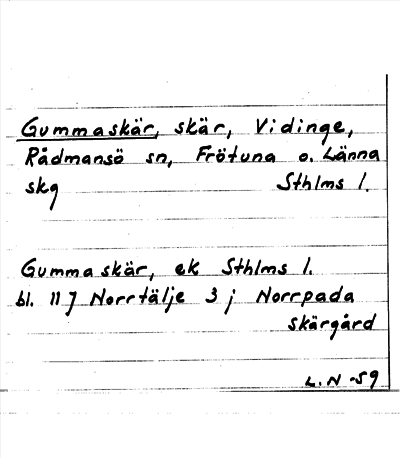 Gummaskär, skär, Vidinge,
Rådmansö sn, Frötuna o. Länna
skg Sthlms l.
Gummaskär, ek Sthlms l.
bl. 117 Norrtälje 3 j Norrpada
skärgård
L.N -59